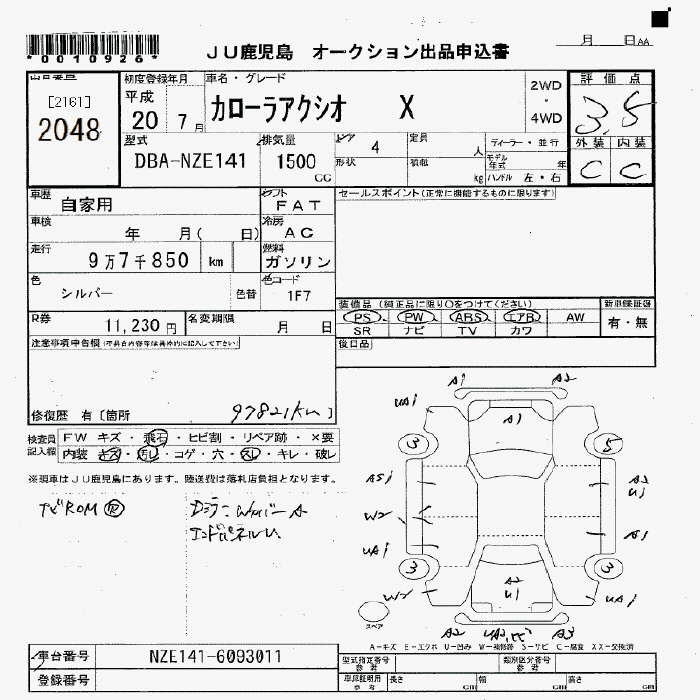 *0010926*
JU鹿児島 オークション出品申込書
月 日AA
[2161]
2048
初度登録年月
平成
20 7月
車名・グレード
カローラアクシオ X
2WD
・
4WD
評価点
3.5
外装 内装
C C
型式
DBA-NZE141
排気量
1500
CC
ドア 4
定員 人
ディーラー・並行
形状
積載 kg
モデル年式 年
ハンドル 左・右
車歴
自家用
シフト
FAT
セールスポイント(正常に機能するものに限ります)
車検
年 月( 日)
冷房
AC
走行
9万7千850 km
燃料
ガソリン
色
シルバー
色替
色コード
1F7
R券
11,230円
名変期限
月 日
装備品(純正品に限り○をつけてください)
PS. PW ABS. エアB. AW
SR ナビ TV カワ
新車保証書
有・無
後日品
注意事項申告欄
修復歴 有〔箇所
97821km〕
検査員
記入欄
FW キズ・飛石・ヒビ割・リペア跡・×要
内装 キズ・汚レ・コゲ・穴・スレ・キレ・破レ
※現車はJU鹿児島にあります。陸送費は落札店負担となります。
ナビROM
A1 A2
UA1
A1
3 5
A51
A2
U1
W2
UA1
A1
3 3
A2
U1
W2
UA1
スペア
A2
A3
A-キズ E-エクボ U-凹み W-補修跡 S-サビ C-腐食 XX-交換済
車台番号
NZE141-6093011
登録番号
型式指定番号
参考
類別区分番号
参考
車庫証明用
参考
長さ cm
幅 cm
高さ cm